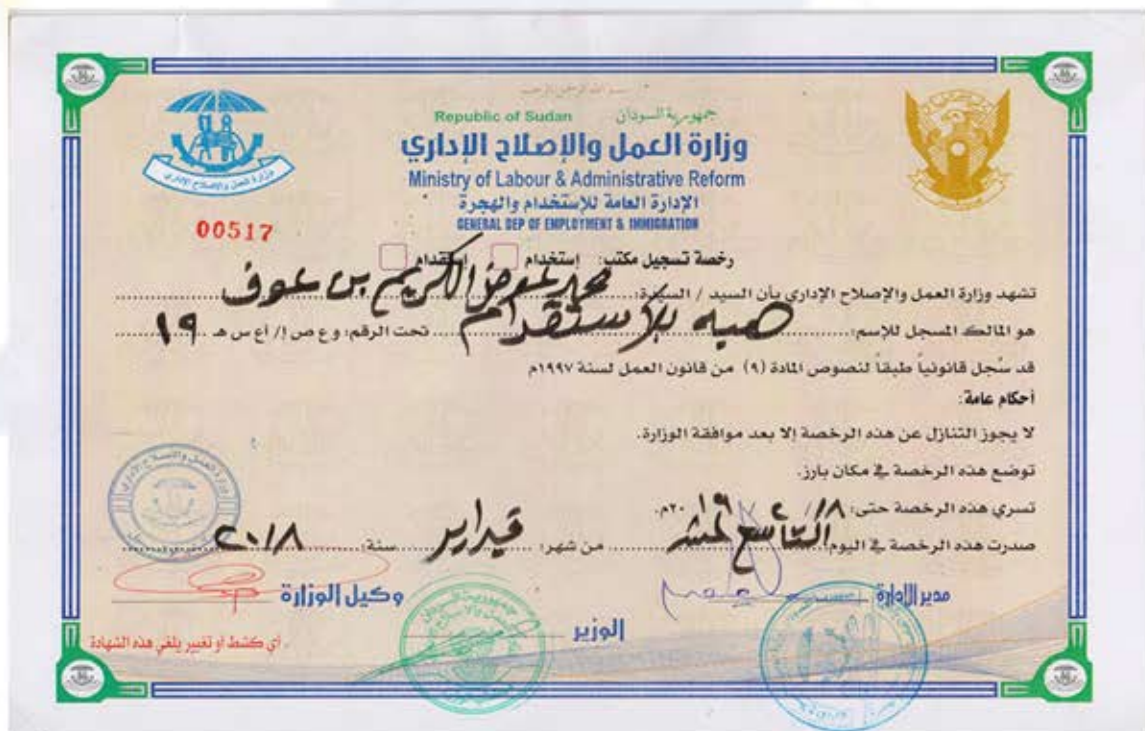 بسم الله الرحمن الرحيم
Republic of Sudan جمهورية السودان
وزارة العمل والإصلاح الإداري
Ministry of Labour & Administrative Reform
الإدارة العامة للإستخدام والهجرة
GENERAL DEP OF EMPLOYMENT & IMMIGRATION
وزارة العمل والإصلاح الإداري
00517
رخصة تسجيل مكتب: إستخدام إستقدام
تشهد وزارة العمل والإصلاح الإداري بأن السيد / السيدة: محمد عوض الكريم بن عوف
هو المالك المسجل للإسم: هبه للإستقدام تحت الرقم: وع ص إ/ أع س هـ ١٩
قد سُجل قانونياً طبقاً لنصوص المادة (٩) من قانون العمل لسنة ١٩٩٧م
أحكام عامة:
لا يجوز التنازل عن هذه الرخصة إلا بعد موافقة الوزارة.
توضع هذه الرخصة في مكان بارز.
تسري هذه الرخصة حتى: ٢٠م.
صدرت هذه الرخصة في اليوم التاسع عشر من شهر: فبراير سنة: ٢٠١٨
مدير الإدارة
وكيل الوزارة
الوزير
أي كشط او تغيير يلغي هذه الشهادة